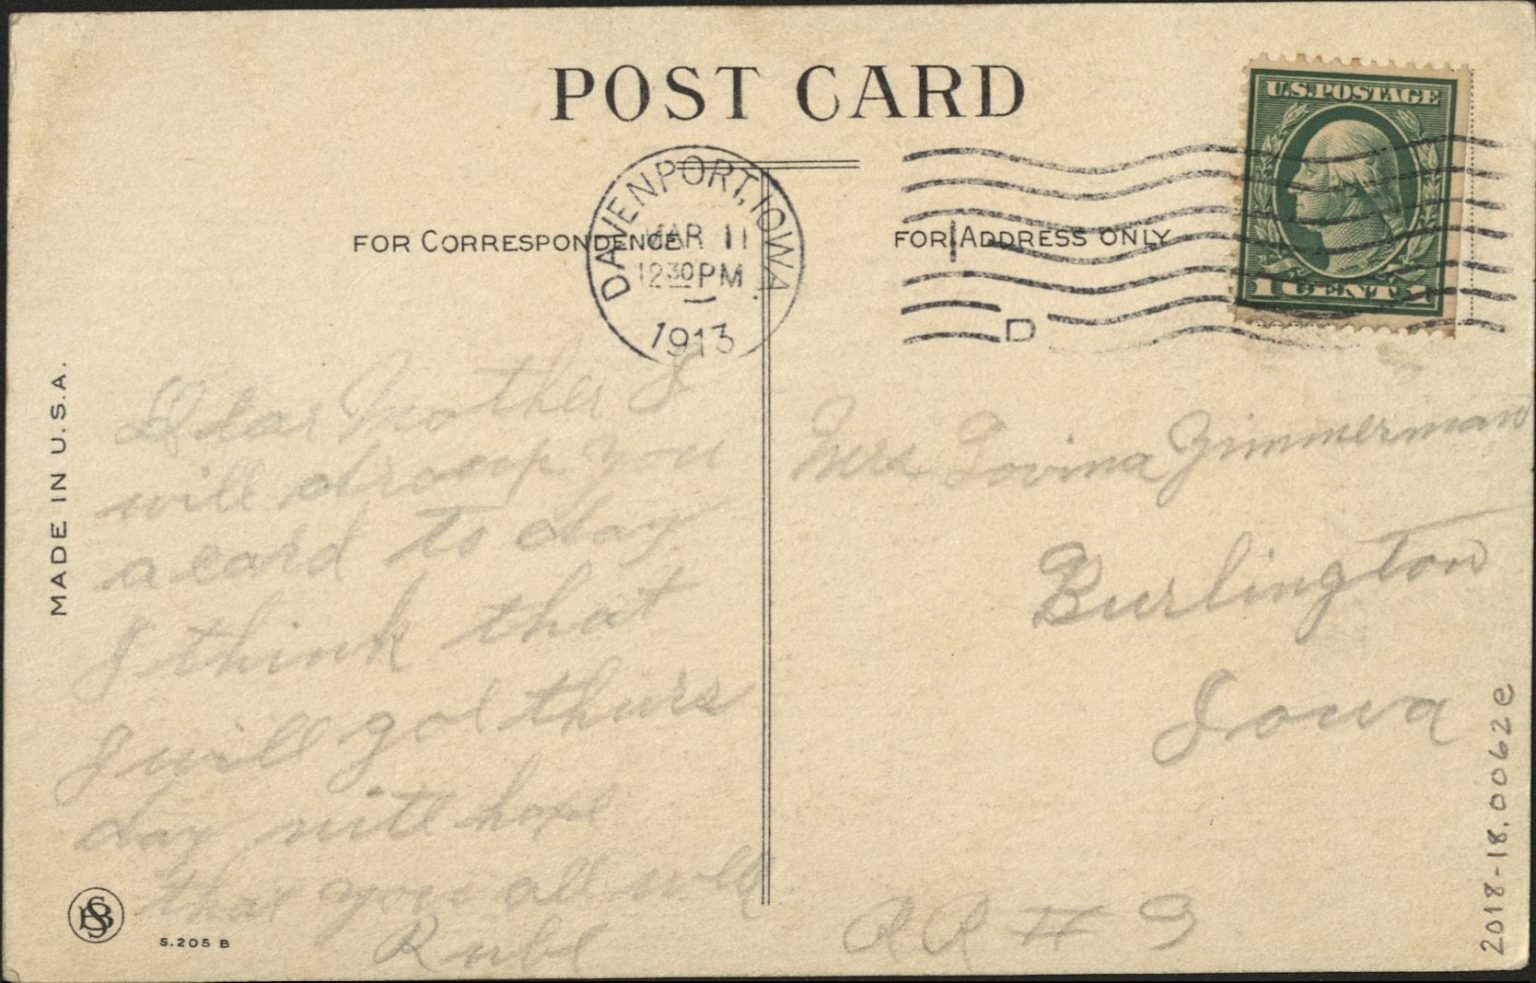 POST CARD
U.S. POSTAGE
1 CENT 1
FOR CORRESPONDENCE
DAVENPORT, IOWA
MAR 11
12 30 PM
1913
D
FOR ADDRESS ONLY
MADE IN U.S.A.
Dear Mother I
will droop you
a card to day
I think that
I will go thurs
day nite hope
that you all well
Rube
Mrs Lovina Zimmerman
Burlington
Iowa
RR # 3
S.205 B
2018-18.0062e